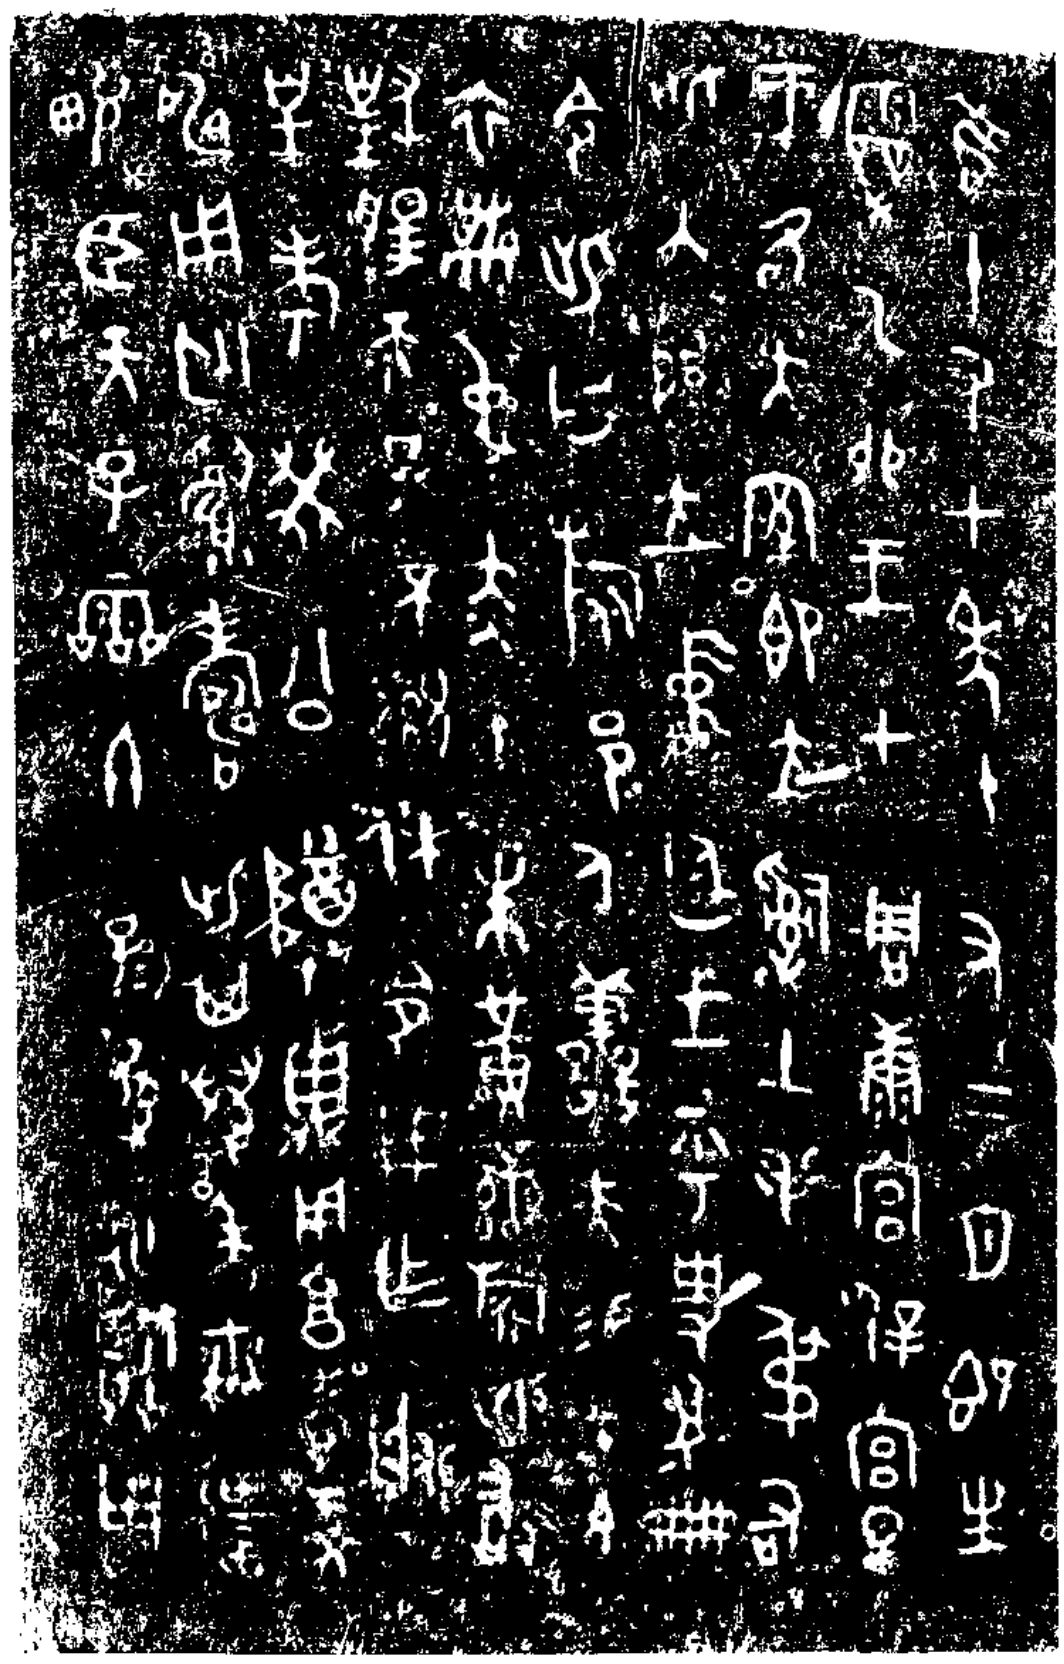 隹十又七年十又二月既生
霸乙卯王才周康宮徲宮旦
王各大室即立𤔲土毛弔右
此入門立中廷王乎史翏冊
令此曰旅邑人善夫易女玄
衣黹屯赤巿朱黃䜌旂此敢
對揚天子不顯休令用乍朕
皇考癸公尊鼎用亯孝于文
申用匄眉壽此其萬年無彊
畯臣天子霝冬子孫永寶用